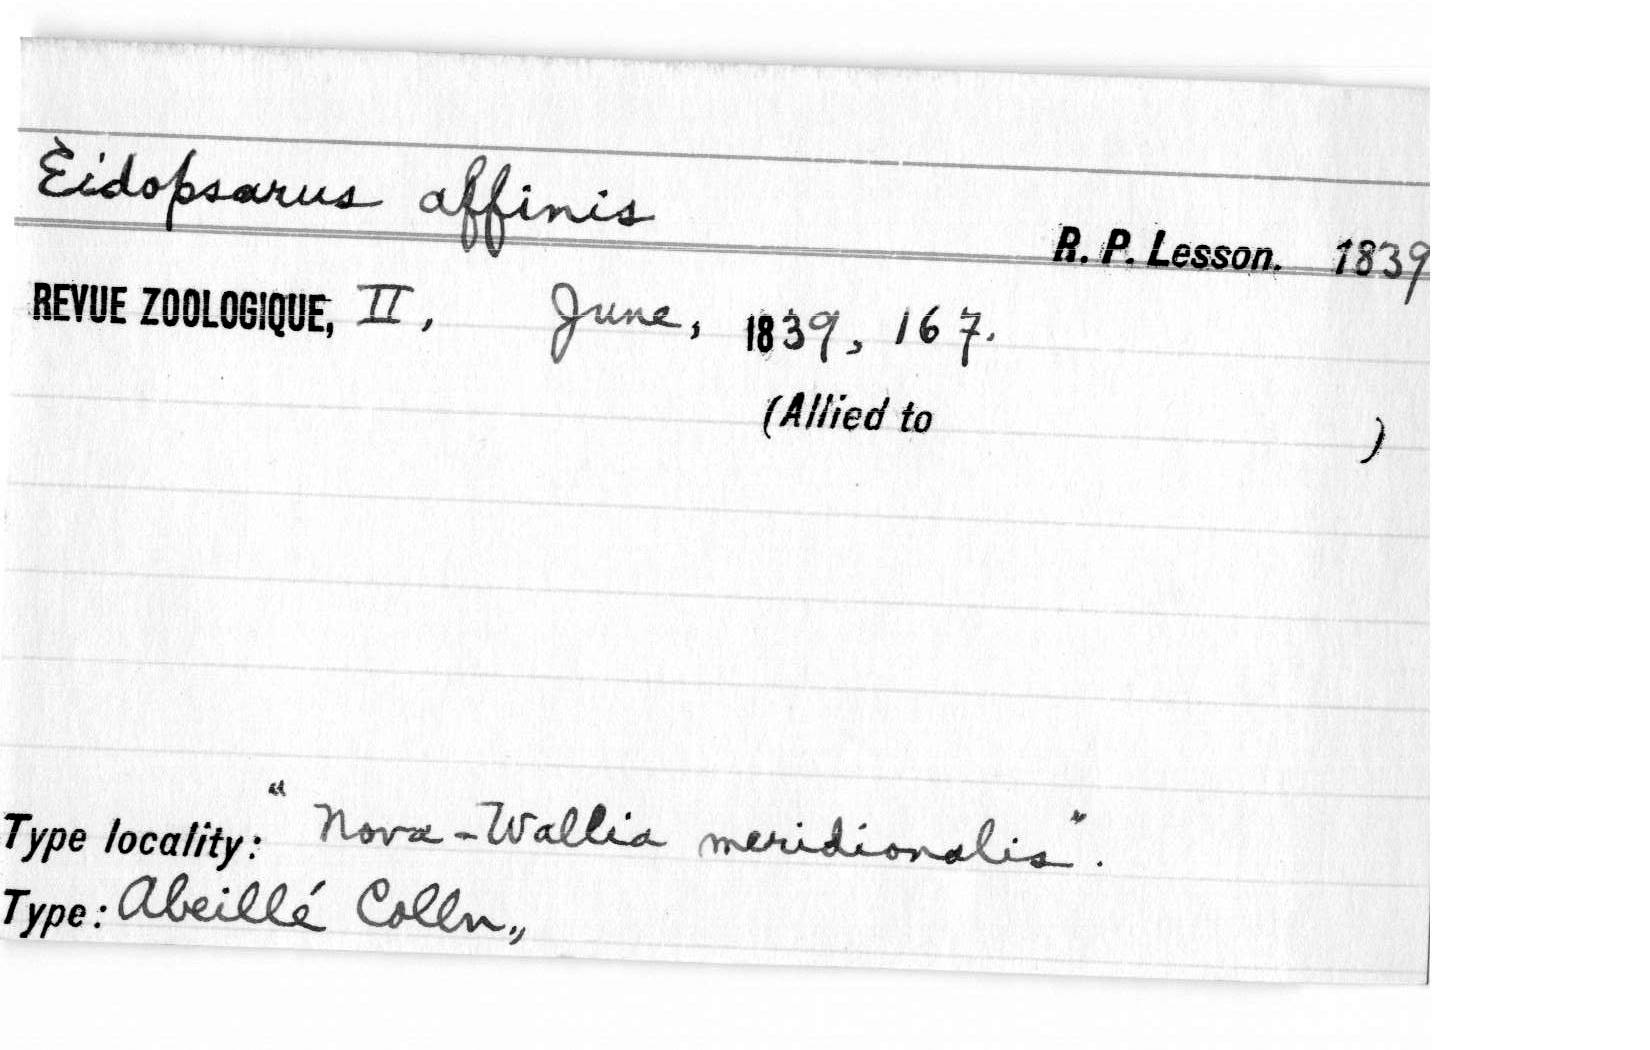 Eidopsarus affinis
R. P. Lesson. 1839
REVUE ZOOLOGIQUE, II, June, 1839, 167.
(Allied to )
Type locality: "Nova-Wallia meridionalis".
Type: Abeillé Colln.,